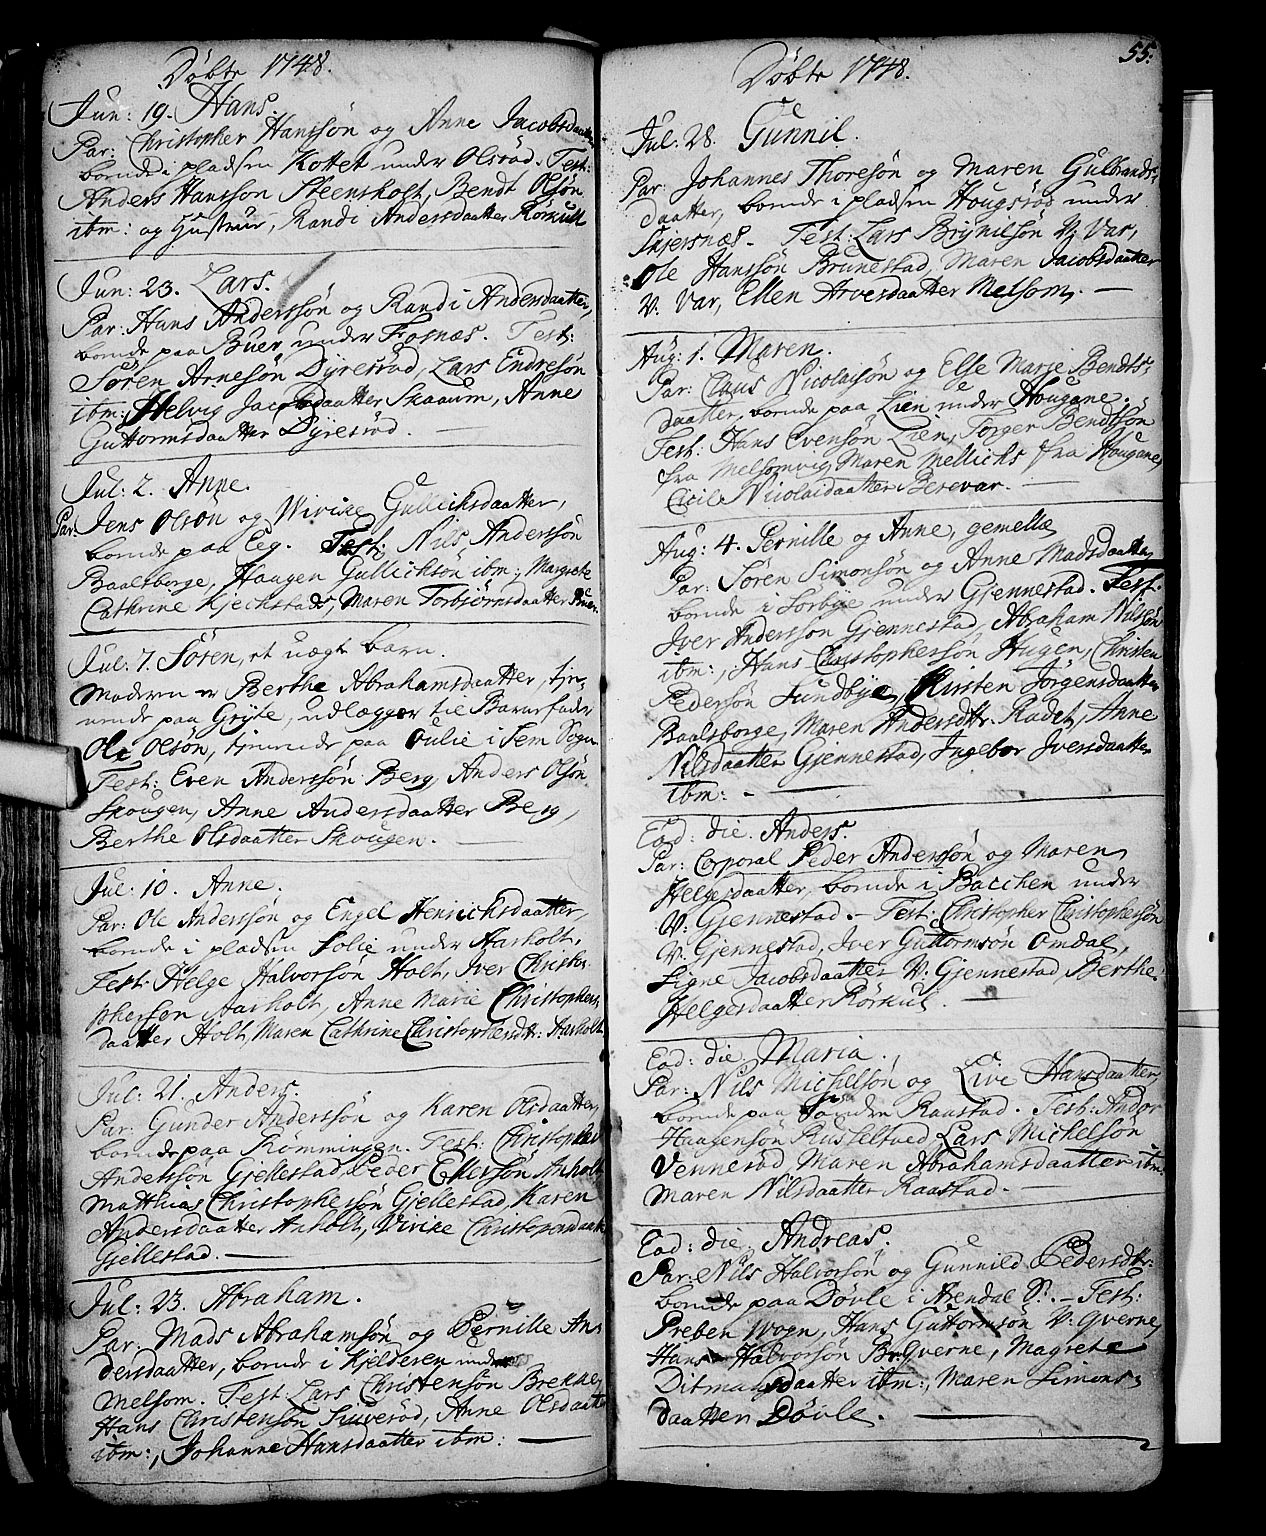 Döbte 1748.
Jun: 19. Hans.
Par: Christopher Hanssön og Anne Jacobsdaatter
boende i pladsen Kottet under Olsröd. Test:
Anders Hansson Steensholt, Bendt Olsön
ibm: og Hustrue, Randi Andersdaatter Rörkull
Jun: 23. Lars.
Par: Hans Anderssön og Randi Andersdaatter,
boende paa Buer under Fosnæs. Test:
Sören Arnesön Dyresröd, Lars Endresön
ibm: Helvig Jacobsdaatter Skaaum, Anne
Guttormsdaatter Dyresröd.
Jul: 2. Anne.
Par: Jens Olson og Wivike Gullichsdaatter,
boende paa Eeg. Test: Nils Anderssön
Baalsborge, Haagen Gullichsön ibm; Margrete
Cathrine Kjechstads, Maren Torbjörnsdaatter
Jul: 7. Sören, et uægt barn.
Moderen er Berthe Abrahamsdaatter, tje-
nende paa Gryte, udlægger til Barnefader
Ole Olsön, tjenende paa Oulie i Sem Sogn
Test: Even Anderssön Berg, Anders Olsön
Skougen, Anne Andersdaatter Berg,
Berthe Olsdaatter Skougen.
Jul: 10. Anne.
Par: Ole Anderssön og Engel Henrichsdaatter,
boende i pladsen Solie under Aarholt.
Test: Helge Halvorsön Holt, Iver Christo-
phersön Aarholt, Anne Marie Christophers
daatter Holt, Maren Cathrine Christophersdtr: Aarholt
Jul: 21. Anders.
Par: Gunder Anderssön og Karen Olsdaatter,
boende paa Römmingen. Test: Christopher
Anderssön Gjellestad, Peder Ellefsön Anholt
Matthias Christophersön Gjellestad, Karen
Andersdaatter Anholt, Vivike Christophersdaatter
Gjellestad.
Jul: 23. Abraham.
Par: Mads Abrahamsön og Pernille An-
dersdaatter, boende i Kjelderen under
Melsom. Test: Lars Christensön Brekke,
Hans Christensön Siuveröd, Anne Olsdaatter
ibm:, Johanne Hansdaatter ibm:
55.
Döbte 1748.
Jul: 28. Gunnil.
Par: Johannes Thoresön og Maren Gulbrands-
daatter, boende i pladsen Hougsröd under
Skjersnæs. Test: Lars Brynilsön N: Var,
Ole Hanssön Brunestad, Maren Jacobsdaatter
N: Var, Ellen Arvesdaatter Melsom.
Aug: 1. Maren.
Par: Claus Nicolaisön og Else Marie Bendts-
daatter, boende paa Lien under Hougane.
Test: Hans Evensön Lien, Torger Bendtsön
fra Melsomvig, Maren Mellichs fra Hougane,
Cicile Nicolaidaatter Berevar.
Aug: 4. Pernille og Anne, gemellæ
Par: Sören Simonsön og Anne Madsdaatter
boende i Sörbye under Gjennestad. Test:
Iver Anderssön Gjennestad, Abraham Nilsön
ibm:, Hans Christophersön Hugen, Christen
Pedersön Sundbye, Kirsten Jörgensdaatter
Baalsborge, Maren Andersdtr. Rödet, Anne
Nilsdaatter Gjennestad, Ingebor Iversdaatter
ibm:
Eod: die. Anders.
Par: Corporal Peder Anderssön og Maren
Helgesdaatter, boende i Bacchen under
V: Gjennestad. Test: Christopher Christophersön
V: Gjennestad, Iver Guttormsön Omdal,
Signe Jacobsdaatter V: Gjennestad, Berthe
Helgesdaatter Rörkul.
Eod: die. Maria.
Par: Nils Michelsön og Live Hansdaatter,
boende paa Söndre Raastad. Test: Andor
Haagensön Russelstved, Lars Michelsön
Venneröd, Maren Abrahamsdaatter ibm:
Maren Nilsdaatter Raastad.
Eod: die. Andreas.
Par: Nils Halvorsön og Gunnild Pedersdtr:
boende paa Dövle i Arendal S: Test:
Preben Wogn, Hans Guttormsön V: Qverne,
Hans Halvorsön Br: Qverne, Magrete
Ditmansdaatter ibm:, Maren Simons-
daatter Dövle.